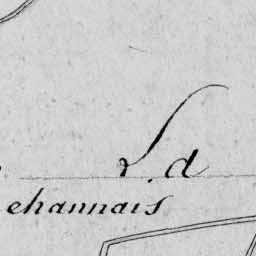 r. d
ehannais